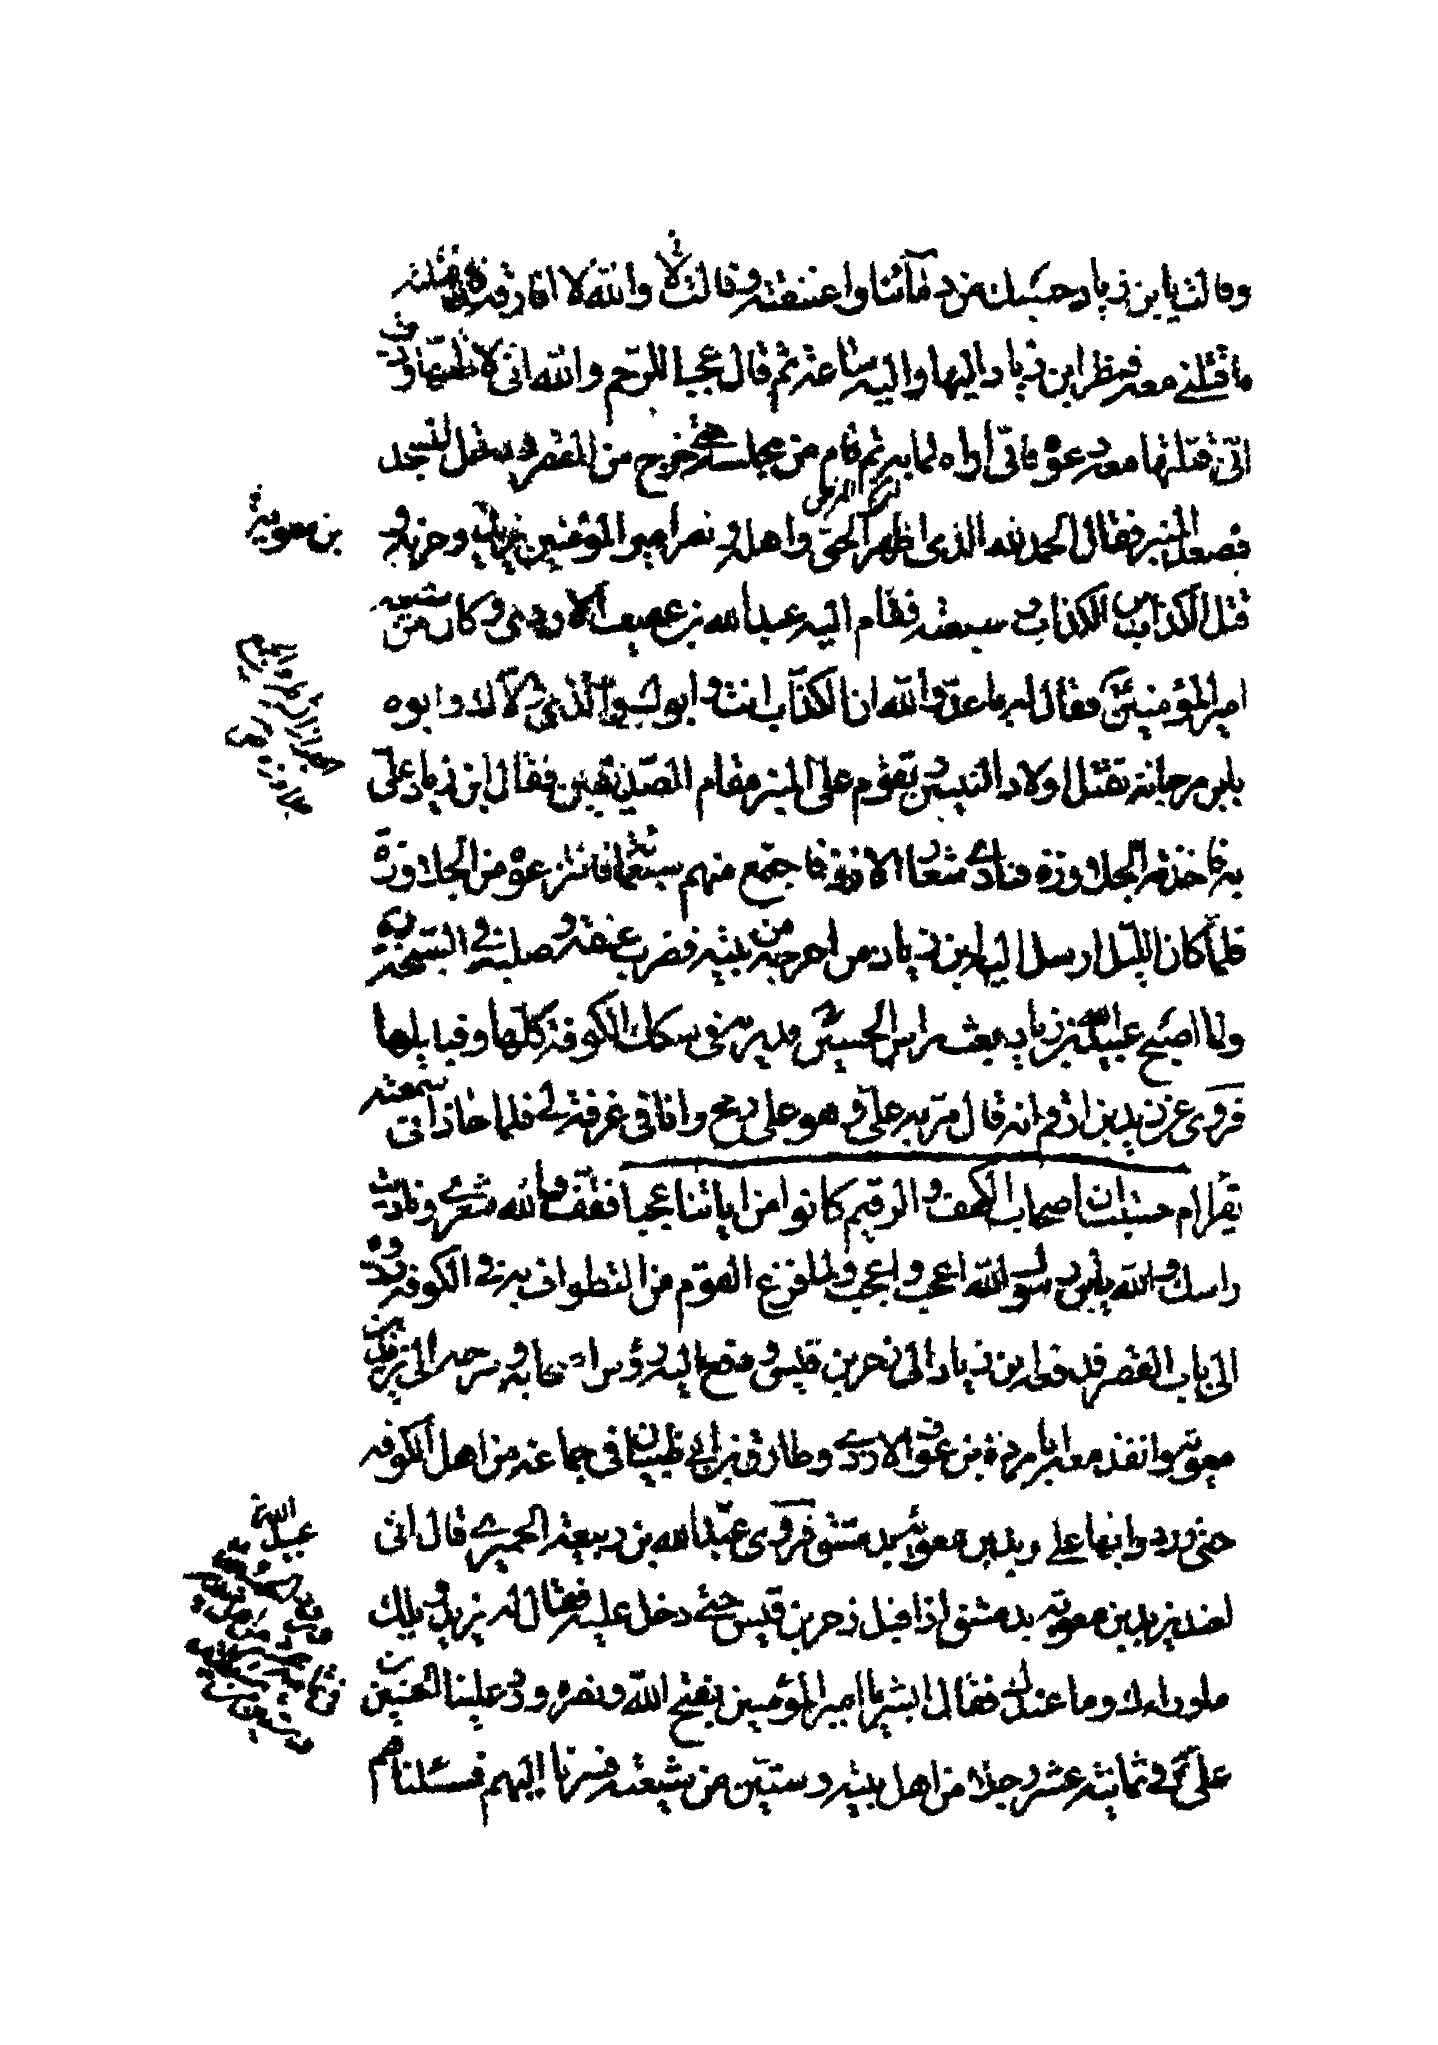 وقالت يا ابن زياد حسبك من دمآئنا واعتنقته وقالت لا والله لا افارقه فان قتلته
فاقتلني معه فنظر ابن زياد اليها واليه ساعة ثم قال عجبا للرحم والله اني لاظنها ودت
اني قتلتها معه دعوه فاني اراه لما به ثم قام من مجلسه حتى خرج من القصر ودخل المسجد
فصعد المنبر فقال الحمد لله الذي اظهر الحق واهله ونصر امير المؤمنين يزيد وحزبه و
بن معوية
قتل الكذاب بن الكذاب وشيعته فقام اليه عبد الله بن عفيف الازدي وكان من شيعة
امير المؤمنين فقال له يا عدو الله ان الكذاب انت وابوك والذي ولاك وابوه
يابن مرجانة تقتل اولاد النبيين وتقوم على المنبر مقام الصديقين فقال ابن زياد علي
به فاخذته الجلاوزة فنادى شعار الازد فاجتمع منهم سبعمائة فانتزعوه من الجلاوزة
فلما كان الليل ارسل اليه ابن زياد من اخرجه من بيته فضرب عنقه وصلبه في السبخة
ولما اصبح عبيد الله بن زياد بعث براس الحسين فدير به في سكك الكوفة كلها وقبايلها
فروي عن زيد بن ارقم انه قال مر به علي وهو على رمح وانا في غرفة لي فلما حاذاني سمعته
يقرا ام حسبت ان اصحاب الكهف والرقيم كانوا من اياتنا عجبا فقف والله شعري وناديت
راسك والله يابن رسول الله اعجب واعجب ولما فرغ القوم من التطواف به في الكوفة ردوه
الى باب القصر فدفعه ابن زياد الى زحر بن قيس ودفع اليه رؤس اصحابه وسرحه الى يزيد بن
معوية وانفذ معه ابا بردة بن عوف الازدي وطارق بن ابي ظبيان في جماعة من اهل الكوفة
حتى وردوا بها على يزيد بن معوية بدمشق فروى عبد الله بن ربيعة الحميري قال اني
لعند يزيد بن معوية بدمشق اذ اقبل زحر بن قيس حتى دخل عليه فقال له يزيد ويلك
ما وراءك وما عندك فقال ابشر يا امير المؤمنين بفتح الله ونصره ورد علينا الحسين بن
علي في ثمانية عشر رجلا من اهل بيته وستين من شيعته فسرنا اليهم فسئلناهم